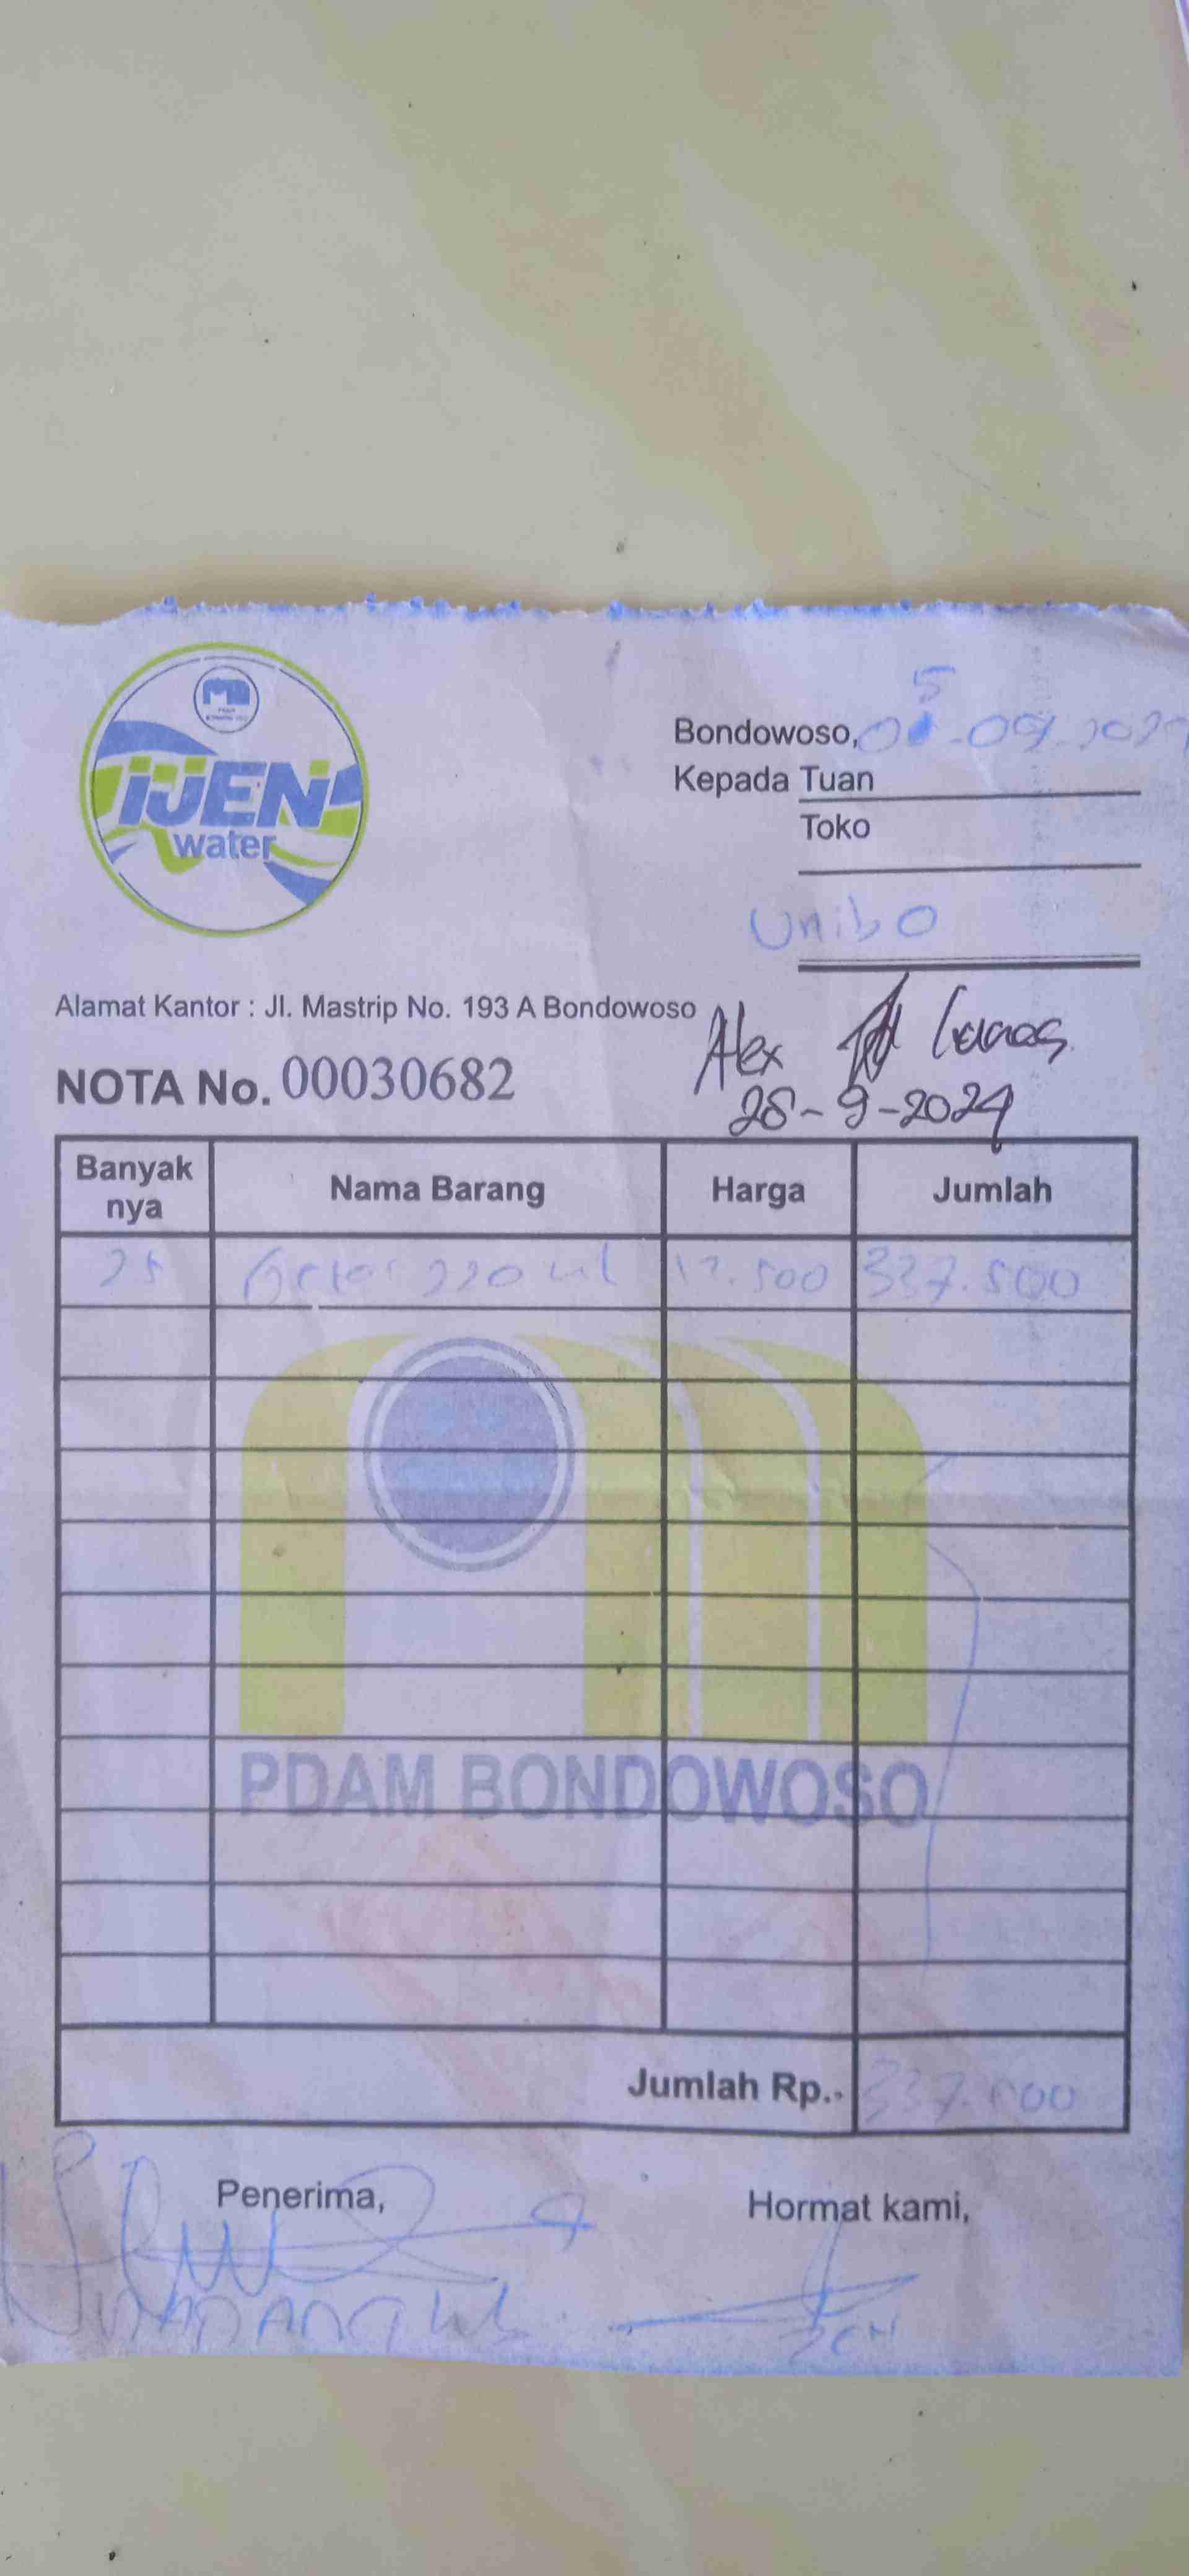 IJEN
water
5
Bondowoso, 05-09-2024
Kepada Tuan
Toko
Unibo
Alamat Kantor : Jl. Mastrip No. 193 A Bondowoso
NOTA No. 00030682
Alex Lunas
28-9-2024
Banyak nya Nama Barang Harga Jumlah
25 220 ml .500 337.500
PDAM BONDOWOSO
Jumlah Rp.- 337.500
Penerima, Hormat kami,